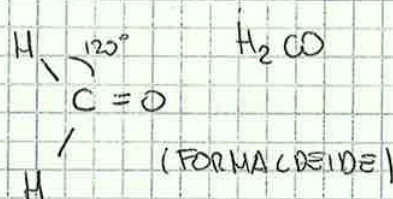 H 120° H₂CO
C = O
H (FORMALDEIDE)